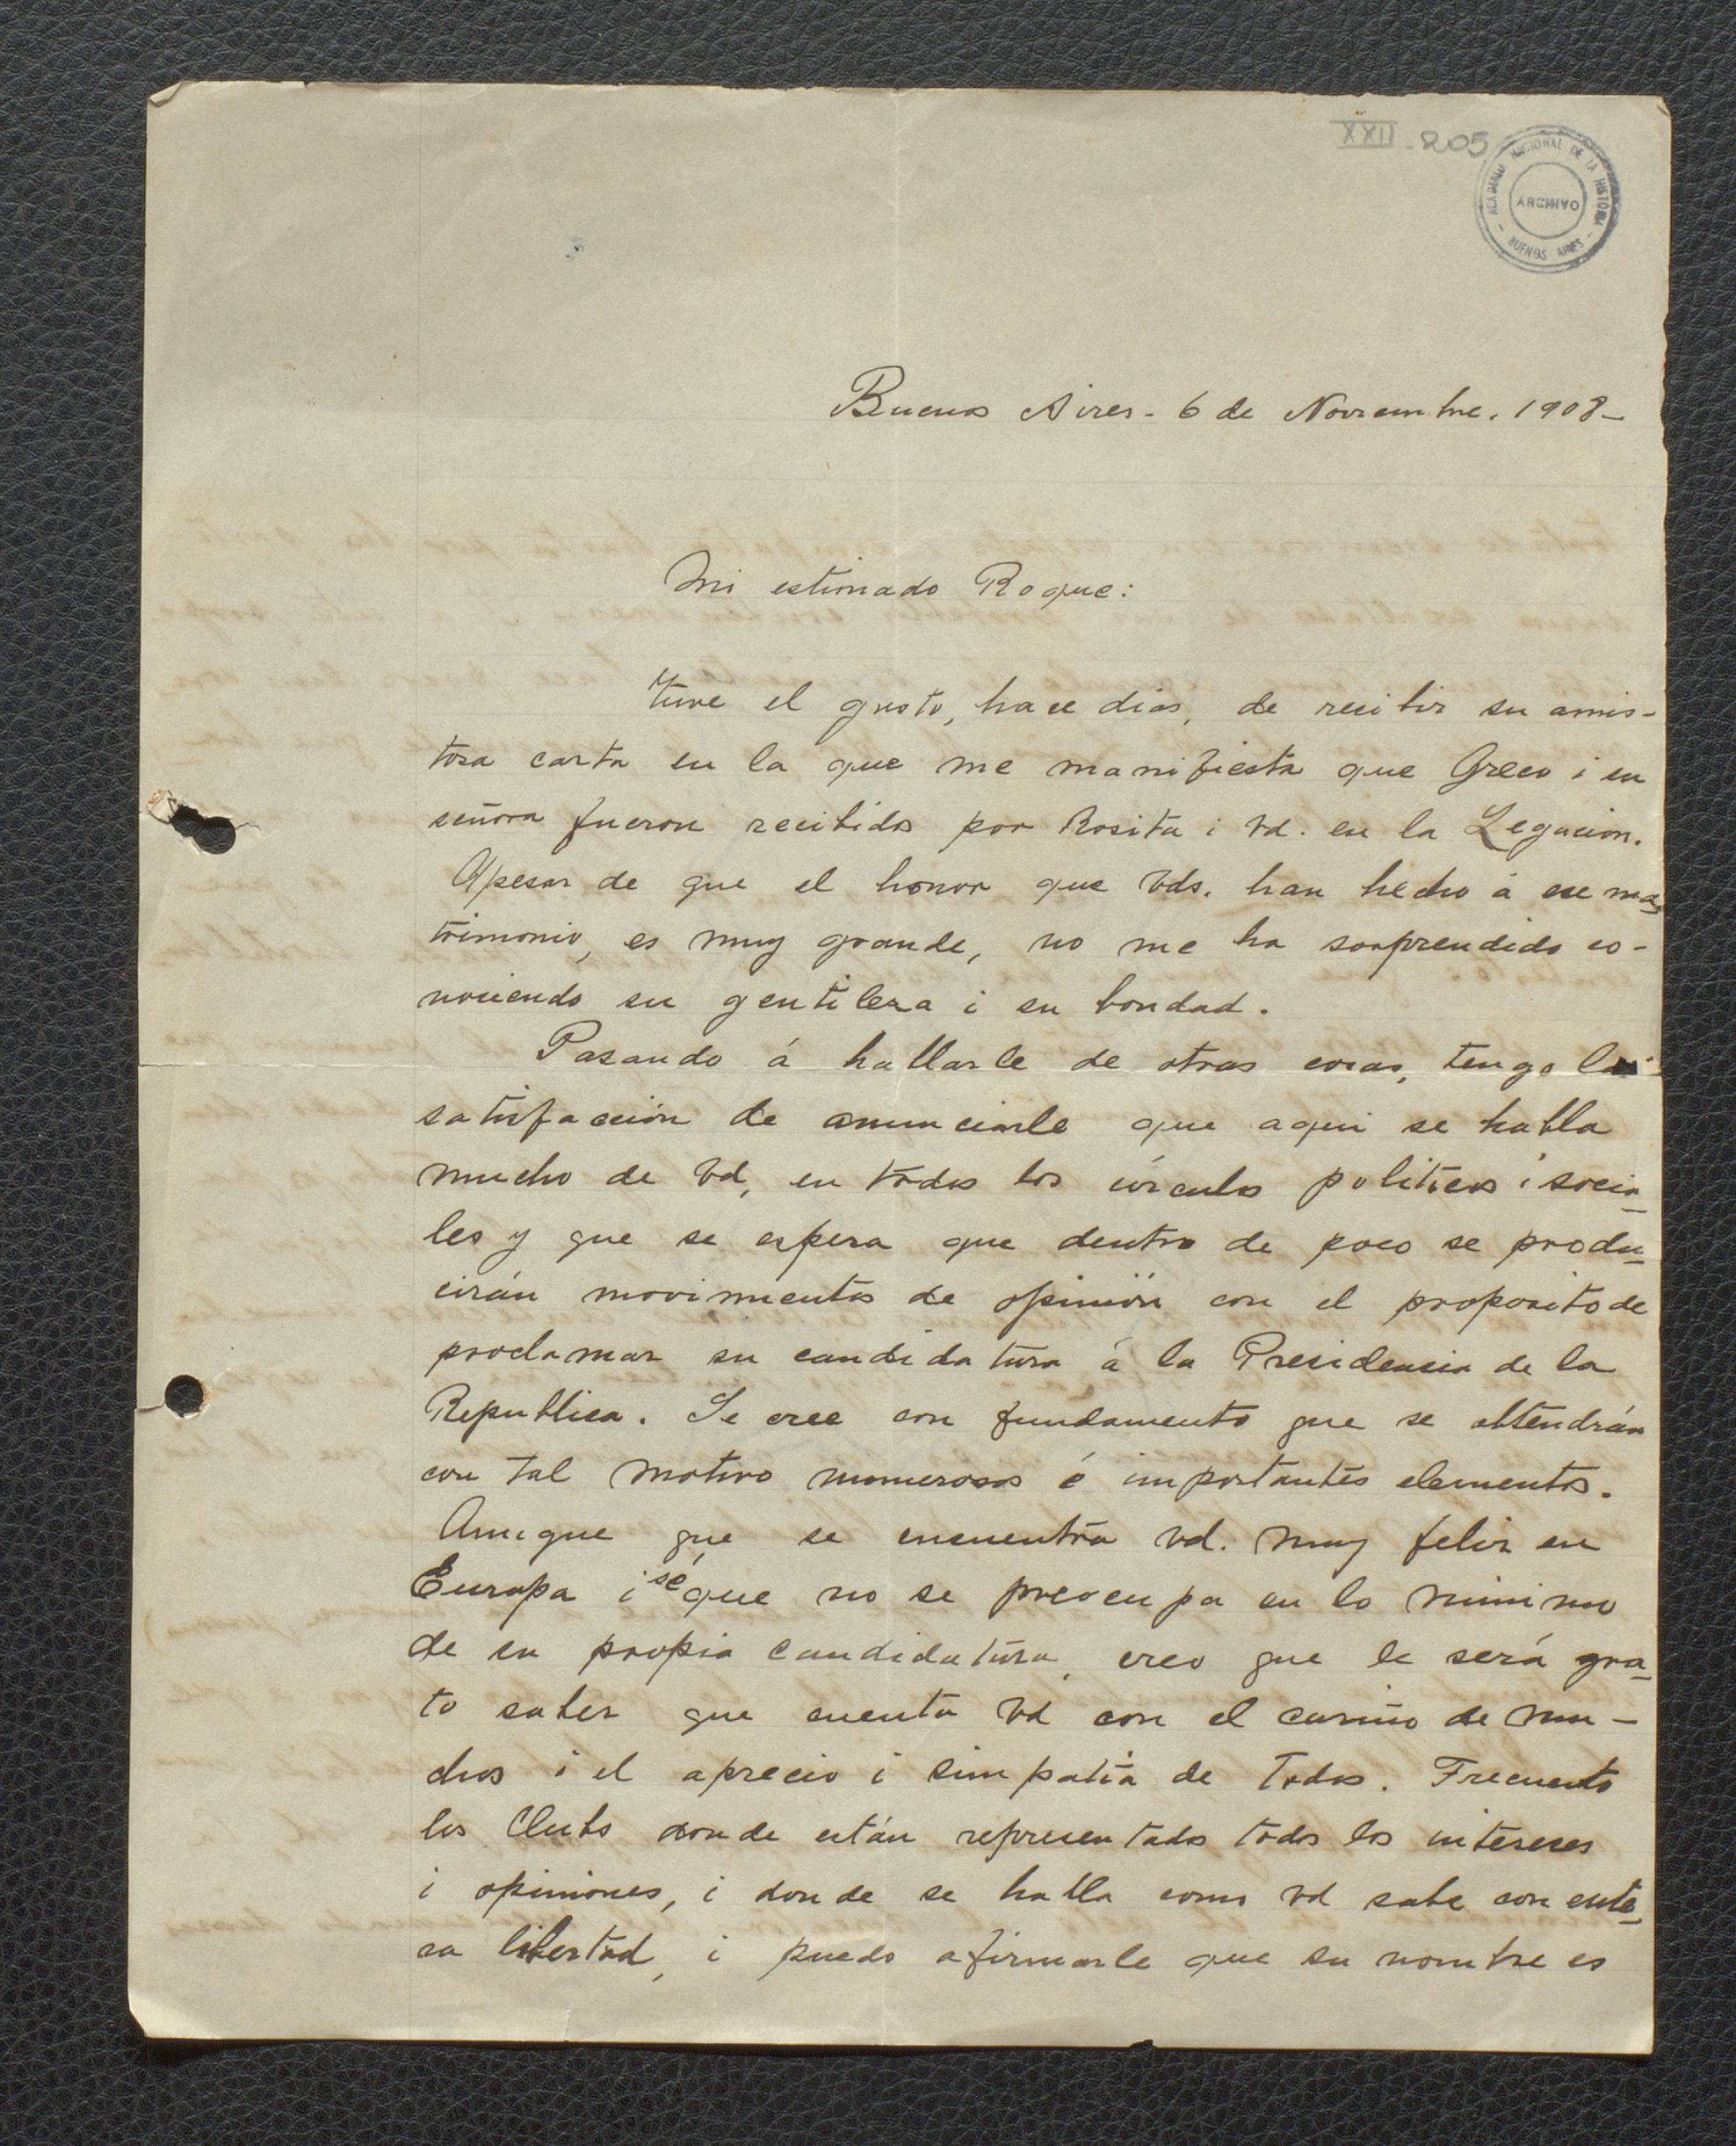 XXII-205
ACADEMIA NACIONAL DE LA HISTORIA
ARCHIVO
- BUENOS AIRES -
Buenos Aires - 6 de Noviembre. 1908 -
Mi estimado Roque:
Tuve el gusto, hace dias, de recibir su amis-
tosa carta en la que me manifiesta que Greco i su
señora fueron recibidos por Rosita i Vd. en la Legacion.
Apesar de que el honor que Vds. han hecho á ese ma-
trimonio, es muy grande, no me ha sorprendido co-
nociendo su gentileza i su bondad.
Pasando á hablarle de otras cosas, tengo la
satisfacción de anunciarle que aqui se habla
mucho de Vd, en todos los círculos politicos i socia-
les y que se espera que dentro de poco se produ-
cirán movimientos de opinión con el proposito de
proclamar su candidatura á la Presidencia de la
Republica. Se cree con fundamento que se obtendrán
con tal motivo numerosos é importantes elementos.
Aunque que se encuentra Vd. muy feliz en
Europa i sé que no se preocupa en lo minimo
de su propia candidatura, creo que le será gra-
to saber que cuenta Vd con el cariño de mu-
chos i el aprecio i simpatía de todos. Frecuento
los Clubs donde están representados todos los intereses
i opiniones, i donde se habla como Vd sabe con ente-
ra libertad, i puedo afirmarle que su nombre es